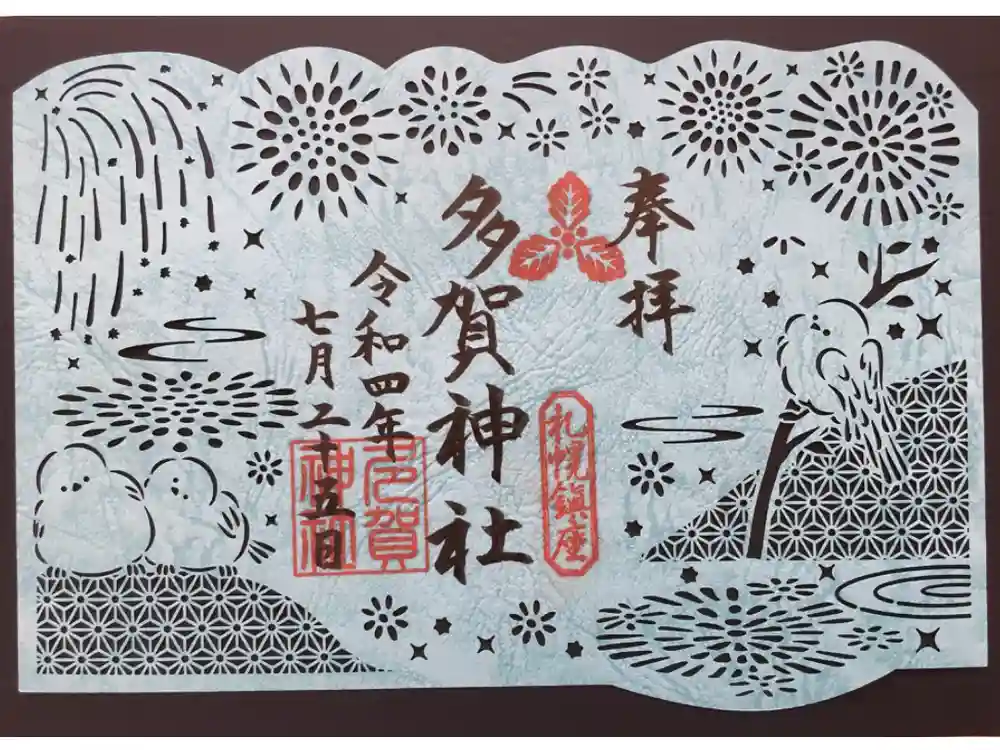 奉拝
札幌鎮座
多賀神社
令和四年
七月二十五日
多賀神社